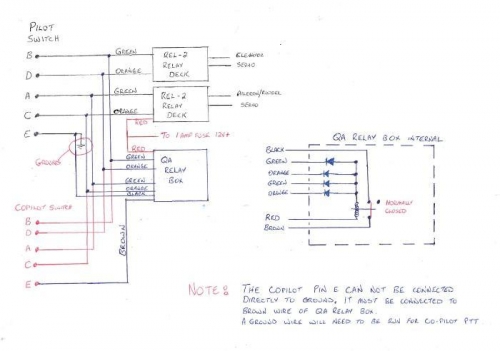 PILOT
SWITCH
B
GREEN
REL-2
RELAY
DECK
ELEVATOR
SERVO
D
ORANGE
A
GREEN
REL-2
RELAY
DECK
SERVO
C
ORANGE
RED
TO 1 AMP FUSE 12V+
RED
E
GROUND
GREEN
ORANGE
GREEN
ORANGE
BLACK
QA
RELAY
BOX
BROWN
COPILOT SWITCH
B
D
A
C
E
QA RELAY BOX INTERNAL
BLACK
GREEN
ORANGE
GREEN
ORANGE
RED
BROWN
NORMALLY
CLOSED
NOTE:
THE COPILOT PIN E CAN NOT BE CONNECTED
DIRECTLY TO GROUND, IT MUST BE CONNECTED TO
BROWN WIRE OF QA RELAY BOX.
A GROUND WIRE WILL NEED TO BE RUN FOR CO-PILOT PTT